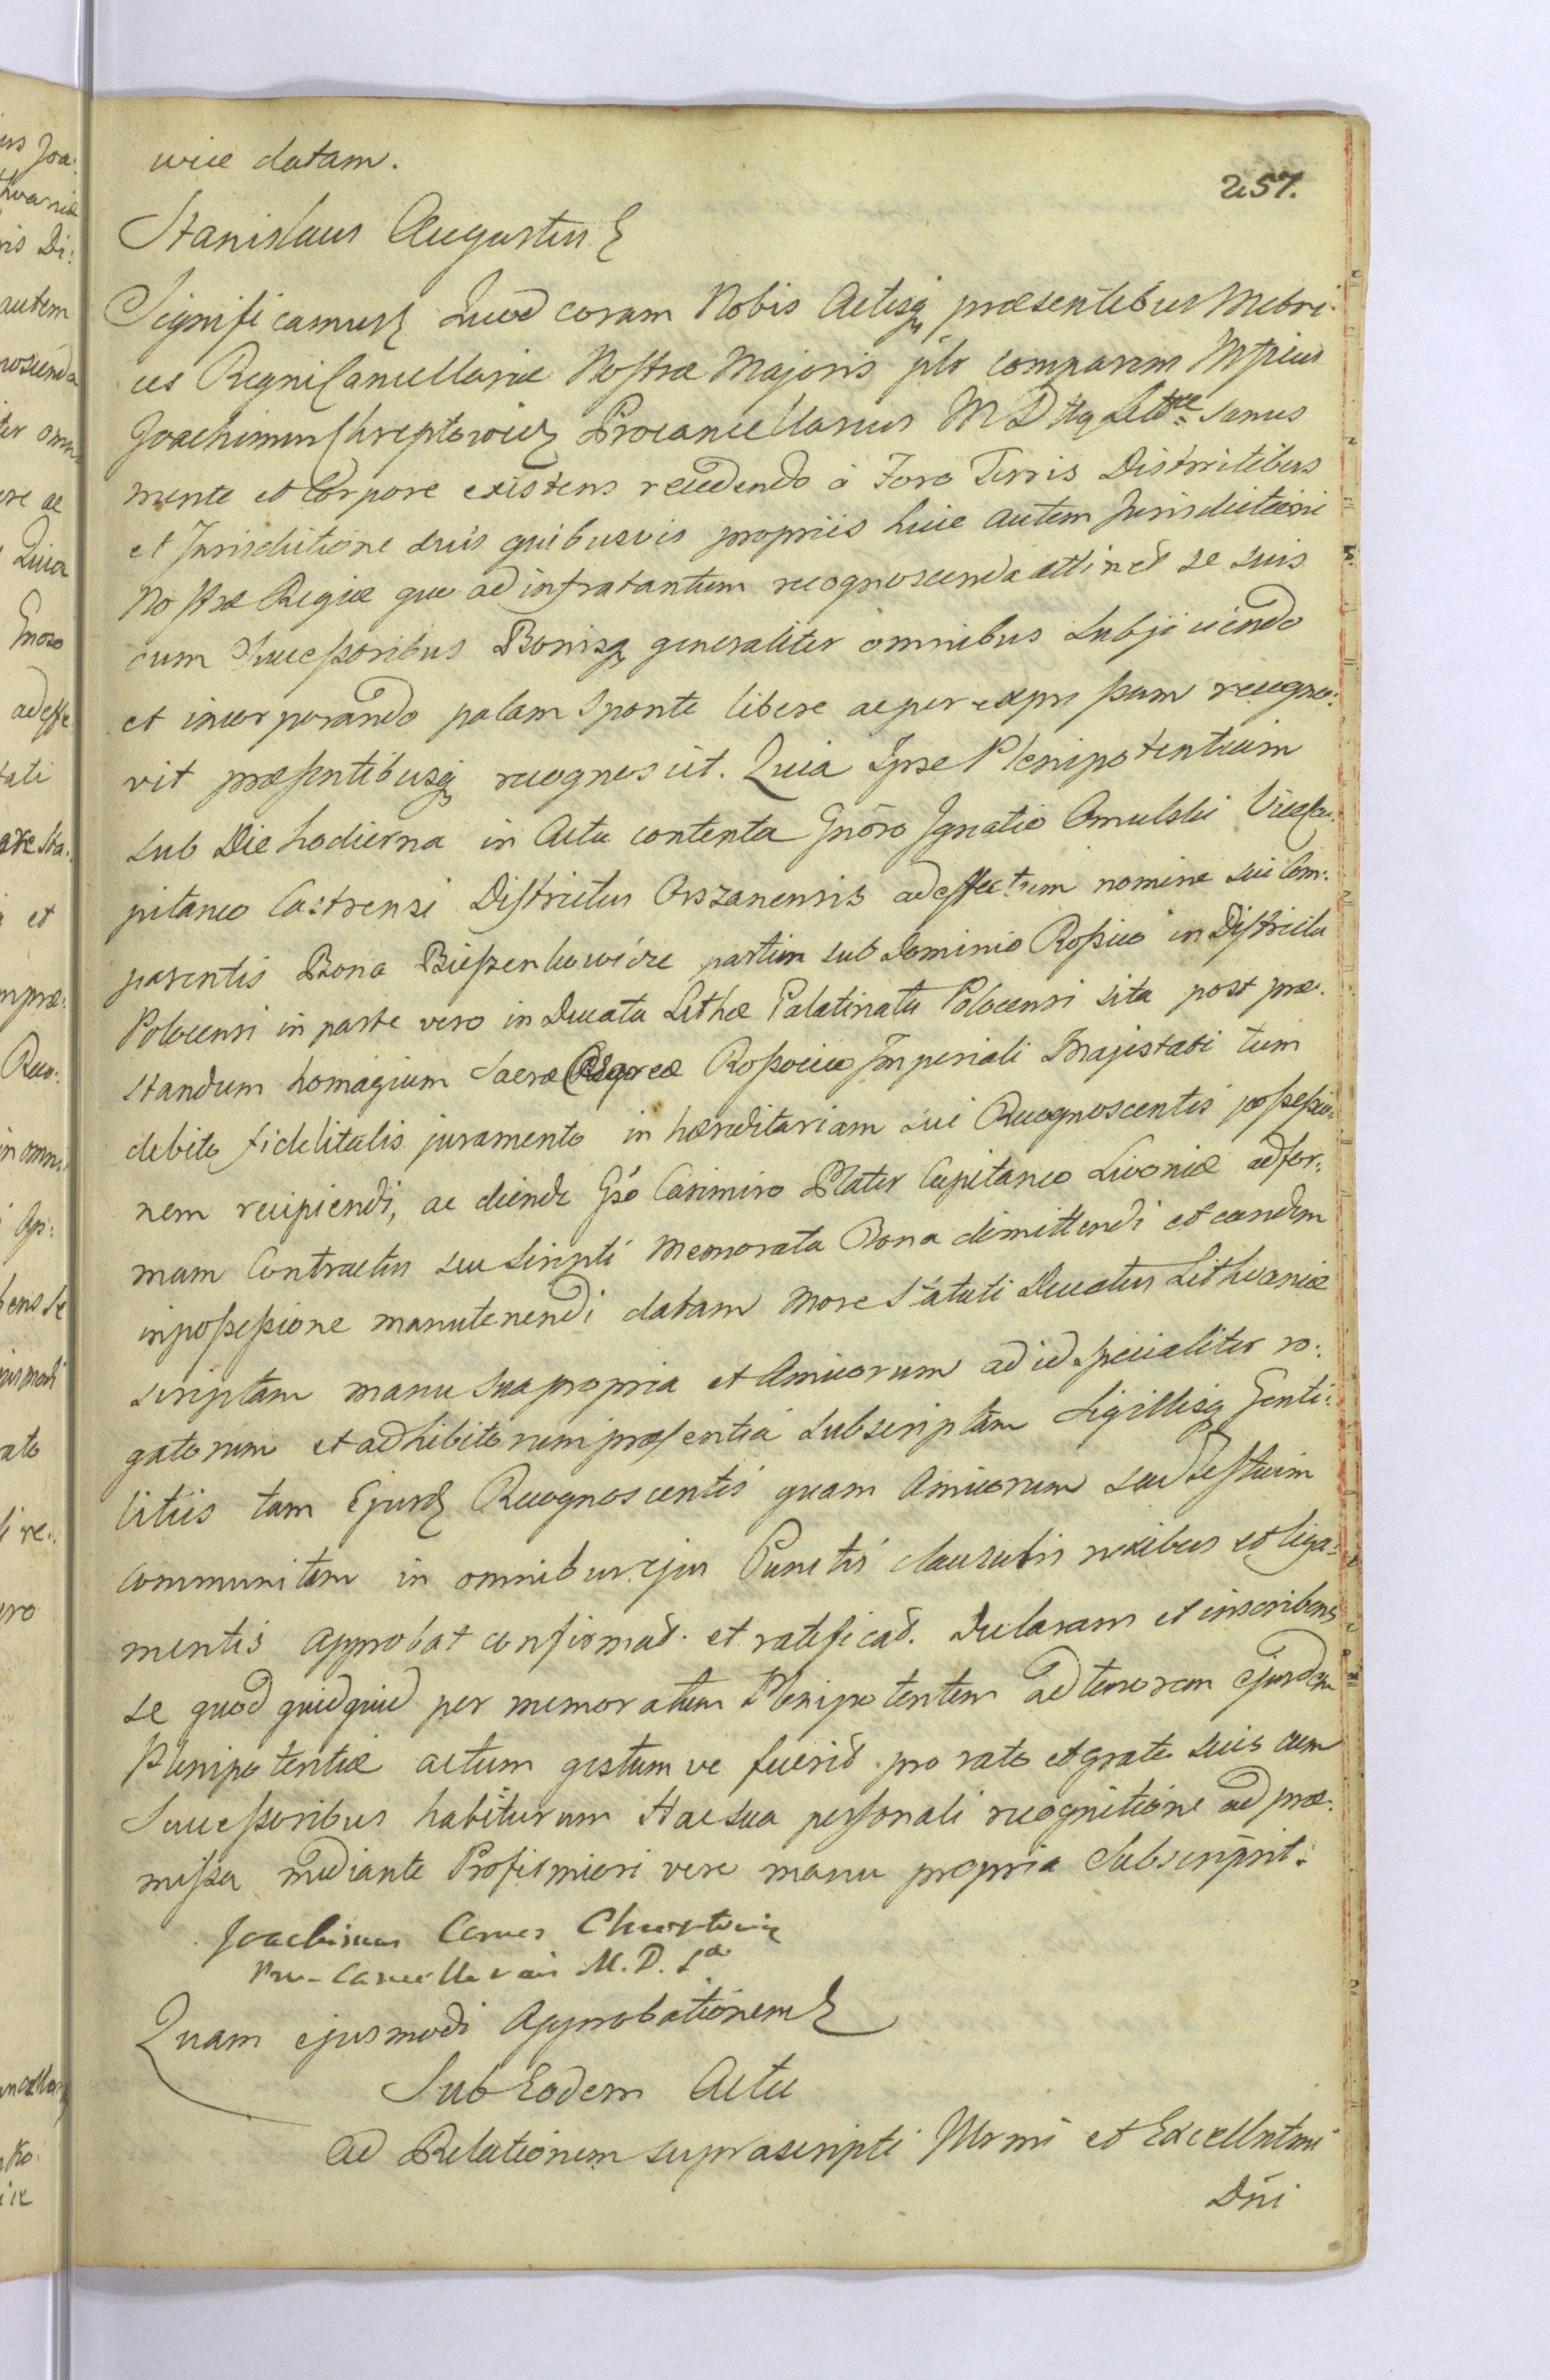 257.
wice datam.
Stanislaus Augustus
Significamus Quod coram Nobis Actisq præsentibus Metri:
ces Regni Cancellariæ Nostræ Majoris plr comparens Mficus
Joachimus Chreptowicz Procancellarius M D Lttæ Sanus
mente et Corpore existens recedendo à Foro Terris Districtibus
et Jurisdictione suis quibusvis propriis huic autem Jurisdictioni
Nostræ Regiæ quo ad infratantum recognoscenda attinet se suis
cum Successoribus Bonisq generaliter omnibus Subjiciendo
et incorporando palam Sponte libere ac per expressum recogno:
vit præsentibusq recognoscit. Quia Ipse Plenipotentiam
sub Die hodierna in Actu contenta Gnōro Ignatio Omulski Viceca:
pitaneo Castrensi Districtus Orszanensis ad effectum nomine sui Com:
parentis Bona Bieszenkowicze partim sub Dominio Rossico in Districtu
Polocensi in parte vero in Ducatu Lithæ Palatinatu Polocensi sita post præ:
standum homagium Sacræ Cæsareæ Rossicæ Imperiali Majestati tum
debito fidelitatis juramento in hæreditariam sui Recognoscentis possessio:
nem recipiendi, ac deinde Gso Casimiro Plater Capitaneo Livoniæ ad for:
mam Contractus seu Scripti memorata Bona dimittendi et eundem
in possessione manutenendi datam more Statuti Ducatus Lithvaniæ
scriptam manu sua propria et Amicorum ad id specialiter ro:
gatorum et adhibitorum præsentia subscriptam Sigillisq Genti:
litiis tam Ejusd Recognoscentis quam Amicorum seu Testium
communitam in omnibus ejus Punctis clausulis nexibus et liga:
mentis approbat confirmat et ratificat. Declarans et inscribens
se quod quidquid per memoratum Plenipotentem ad tenorem ejusdem
Plenipotentiæ actum gestum ve fuerit pro rato et grato suis cum
Successoribus habiturum Hac sua personali recognitione ad præ:
missa mediante Profitmieri vere manu propria Subscripsit.
Joachimus Comes Chreptowicz
Pro-Cancellarius M. D. L
Quam ejusmodi Approbationem
Sub Eodem Actu
Ad Relationem suprascripti Illrmi et Excellntmi
Dn̄i